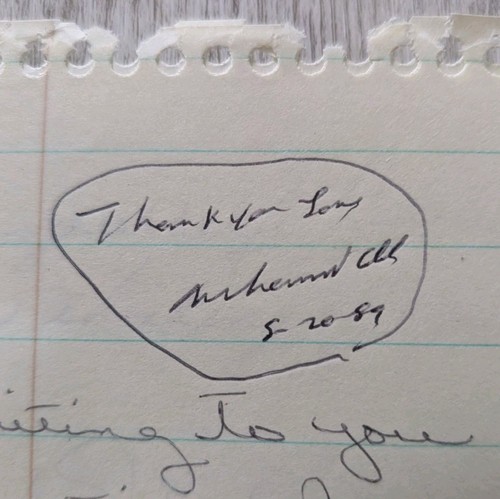 Thank you
Muhammad Ali
5-20-89
iting to you